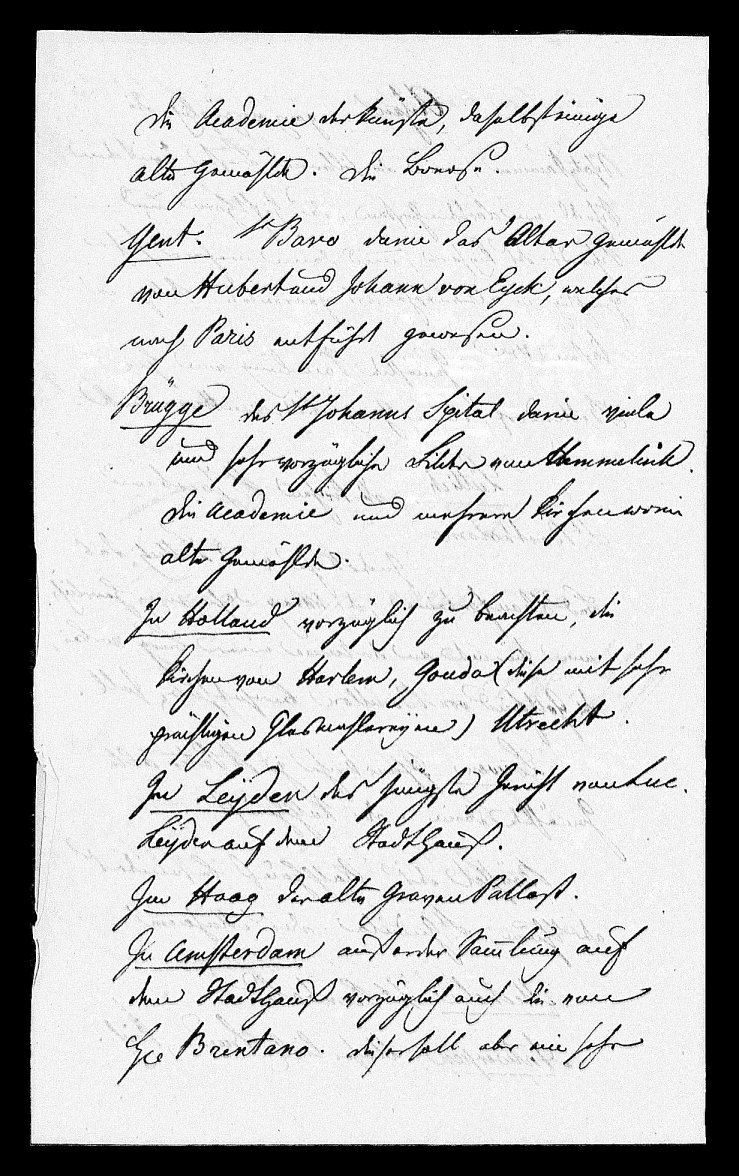 die Academie der Künste, daselbst einige
alte Gemählde. die Boerse.
Gent. St Bavo darin das Altar Gemählde
von Hubert und Johann von Eyck, welches
nach Paris entführt gewesen.
Brügge das St Johanns Spital darin viele
und sehr vorzügliche Bilder von Hemmelink.
die Academie und mehrere Kirchen worin
alte Gemählde.
In Holland vorzüglich zu beachten, die
Kirchen von Harlem, Gouda (diese mit sehr
prächtigen Glasmahlereyen) Utrecht.
In Leÿden das jüngste Gericht von Luc.
Leÿden auf dem Stadthauß.
Im Haag der alte Graven Pallast.
In Amsterdam außer der Samlung auf
dem Stadthauß vorzüglich auch die von
He Brentano. dieser soll aber ein sehr